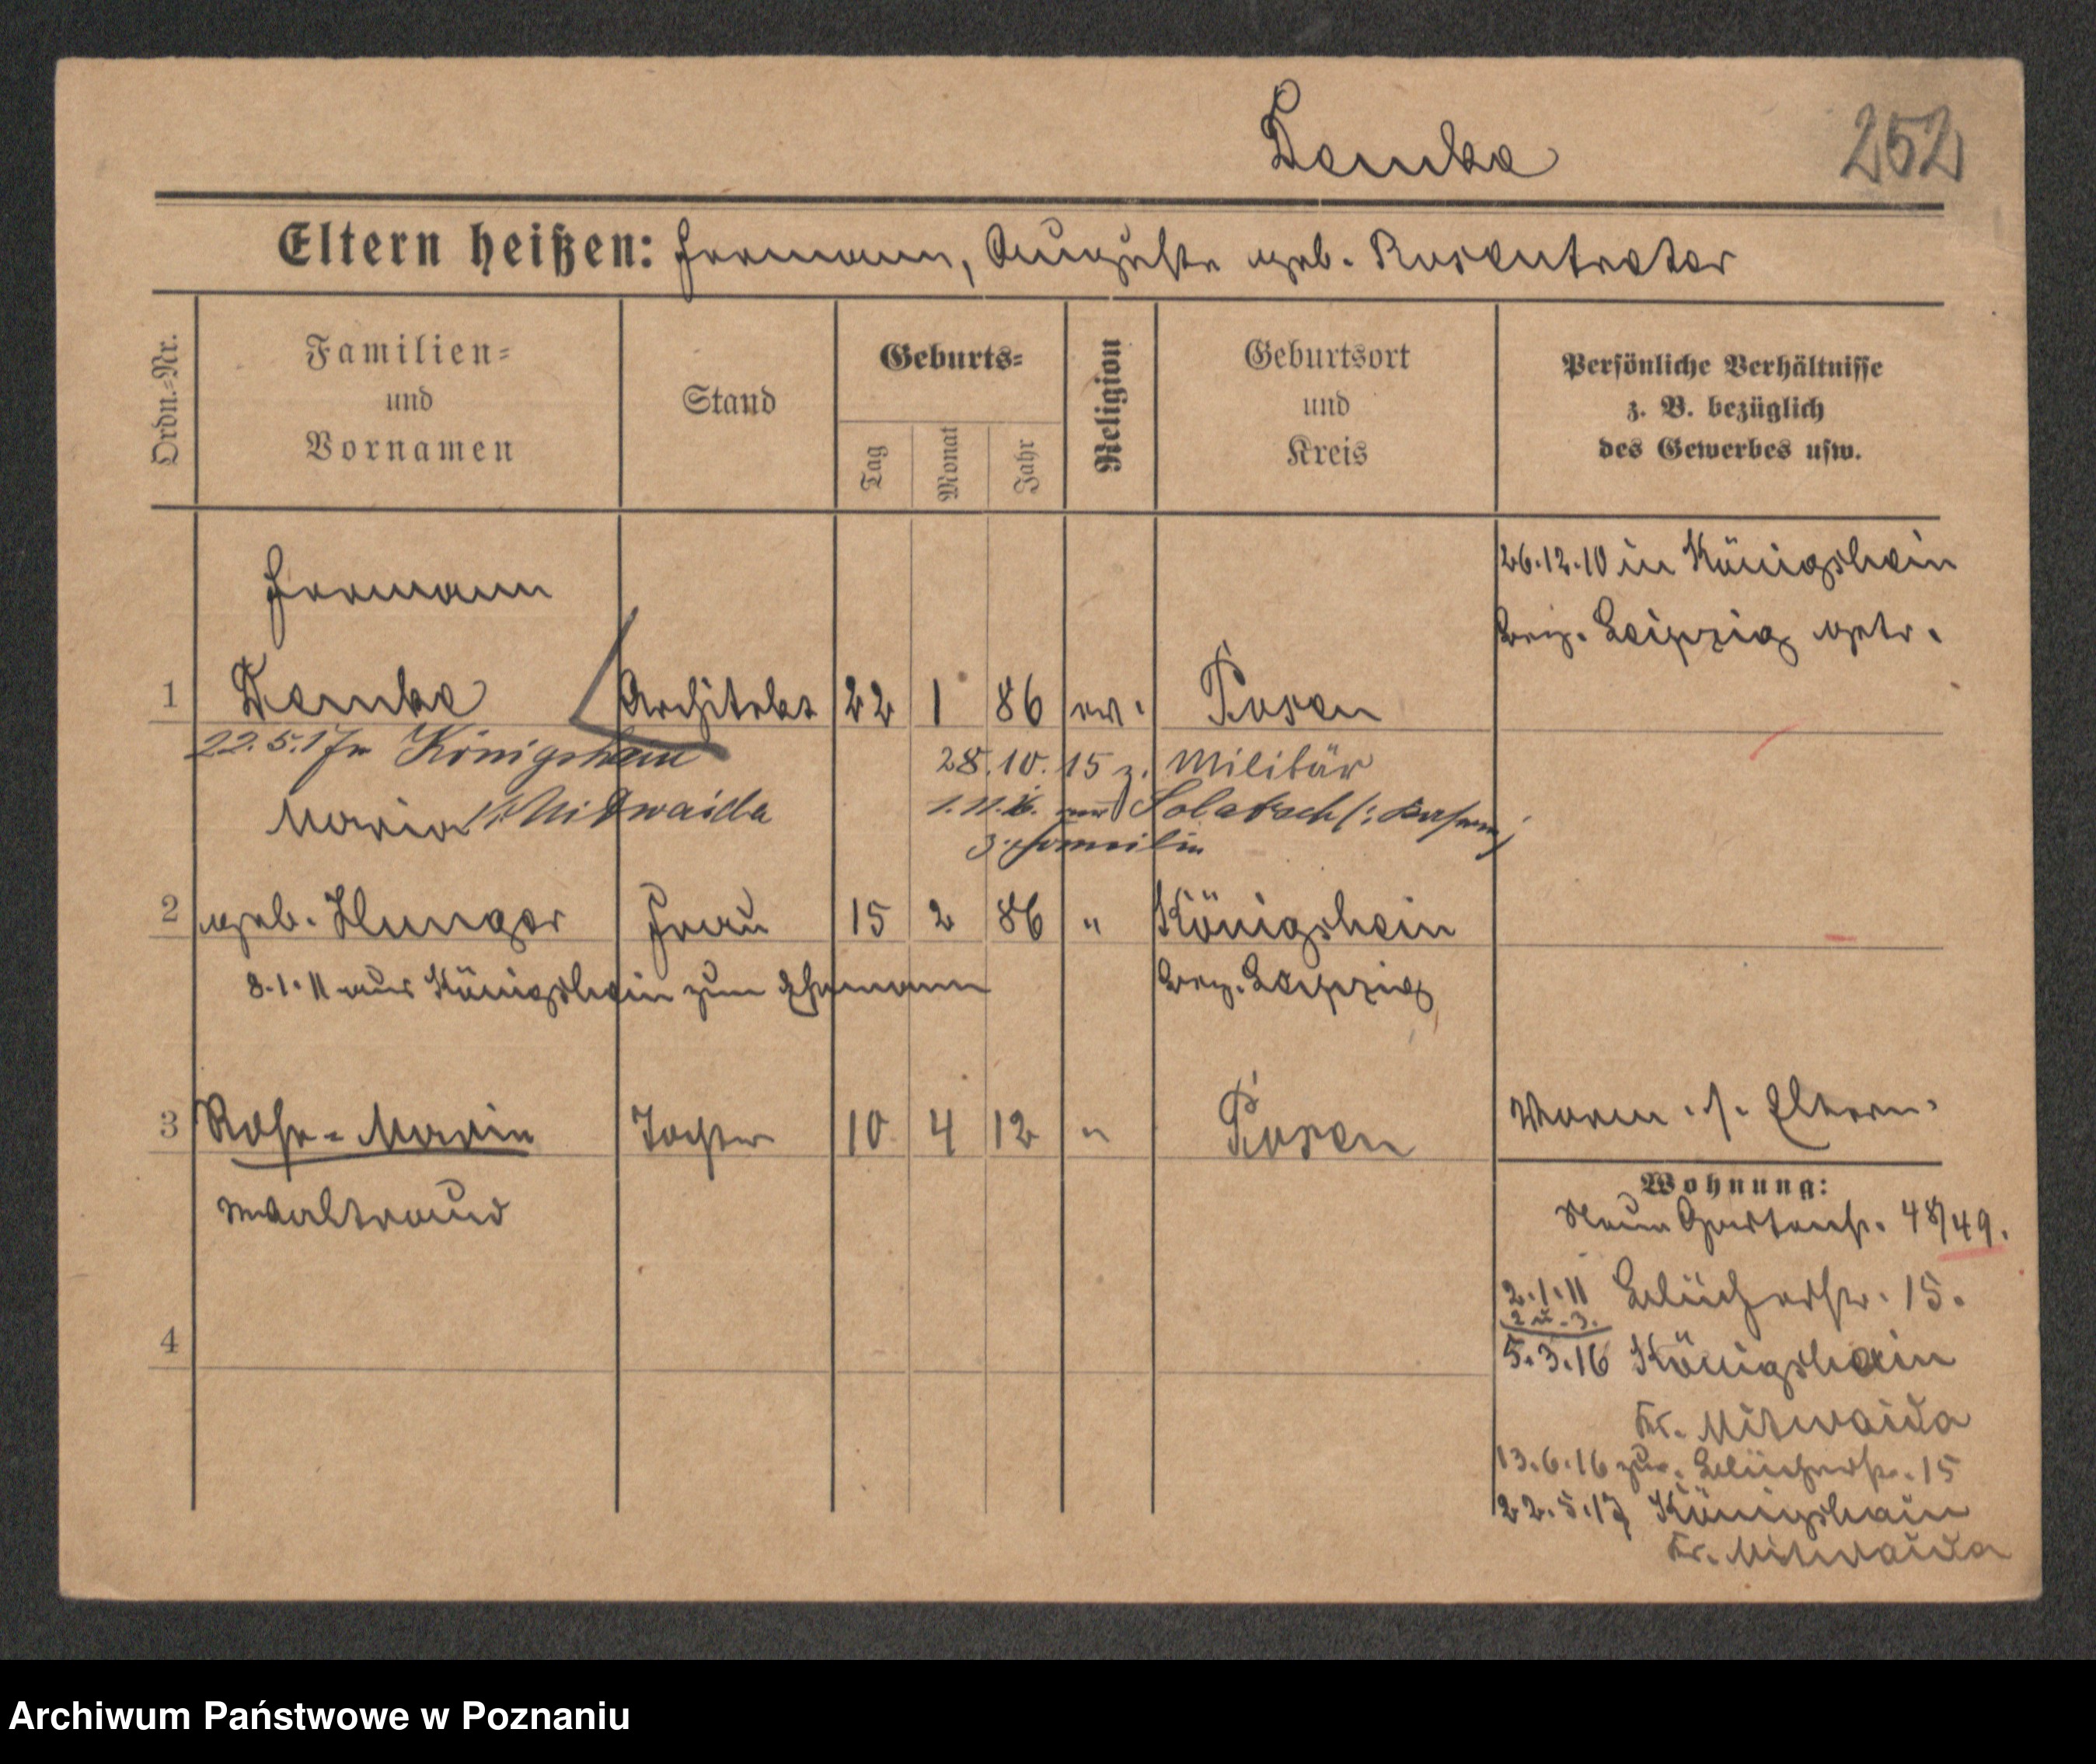 Demke
252
Eltern heißen: Hermann, Auguste geb. Rosentreter
Ordn.-Nr.
Familien-
und
Vornamen
Stand
Geburts-
Tag
Monat
Jahr
Religion
Geburtsort
und
Kreis
Persönliche Verhältnisse
z. B. bezüglich
des Gewerbes usw.
Hermann
26.12.10 in Königshein
Bez. Leipzig getr.
1 Demke Architekt 22 1 86 ev. Posen
22.5.17 n Königshain
28.10.15 z. Militär
Maria Mitwaida
1.11.16. Solatsch
z. Familie
2 geb. Hunger Frau 15 2 86 " Königshein
8.1.11 aus Königshein zum Ehemann
Bez. Leipzig
3 Rose-Marie Tochter 10 4 12 " Posen
Waltraud
Verm. s. Eltern.
Wohnung:
Neue Gartenstr. 48/49.
2.1.11 Blücherstr. 15.
2 u. 3.
5.3.16 Königshain
Kr. Mitwaida
13.6.16 zur. Blücherstr. 15
22.5.17 Königshain
Kr. Mitwaida
4
Archiwum Państwowe w Poznaniu